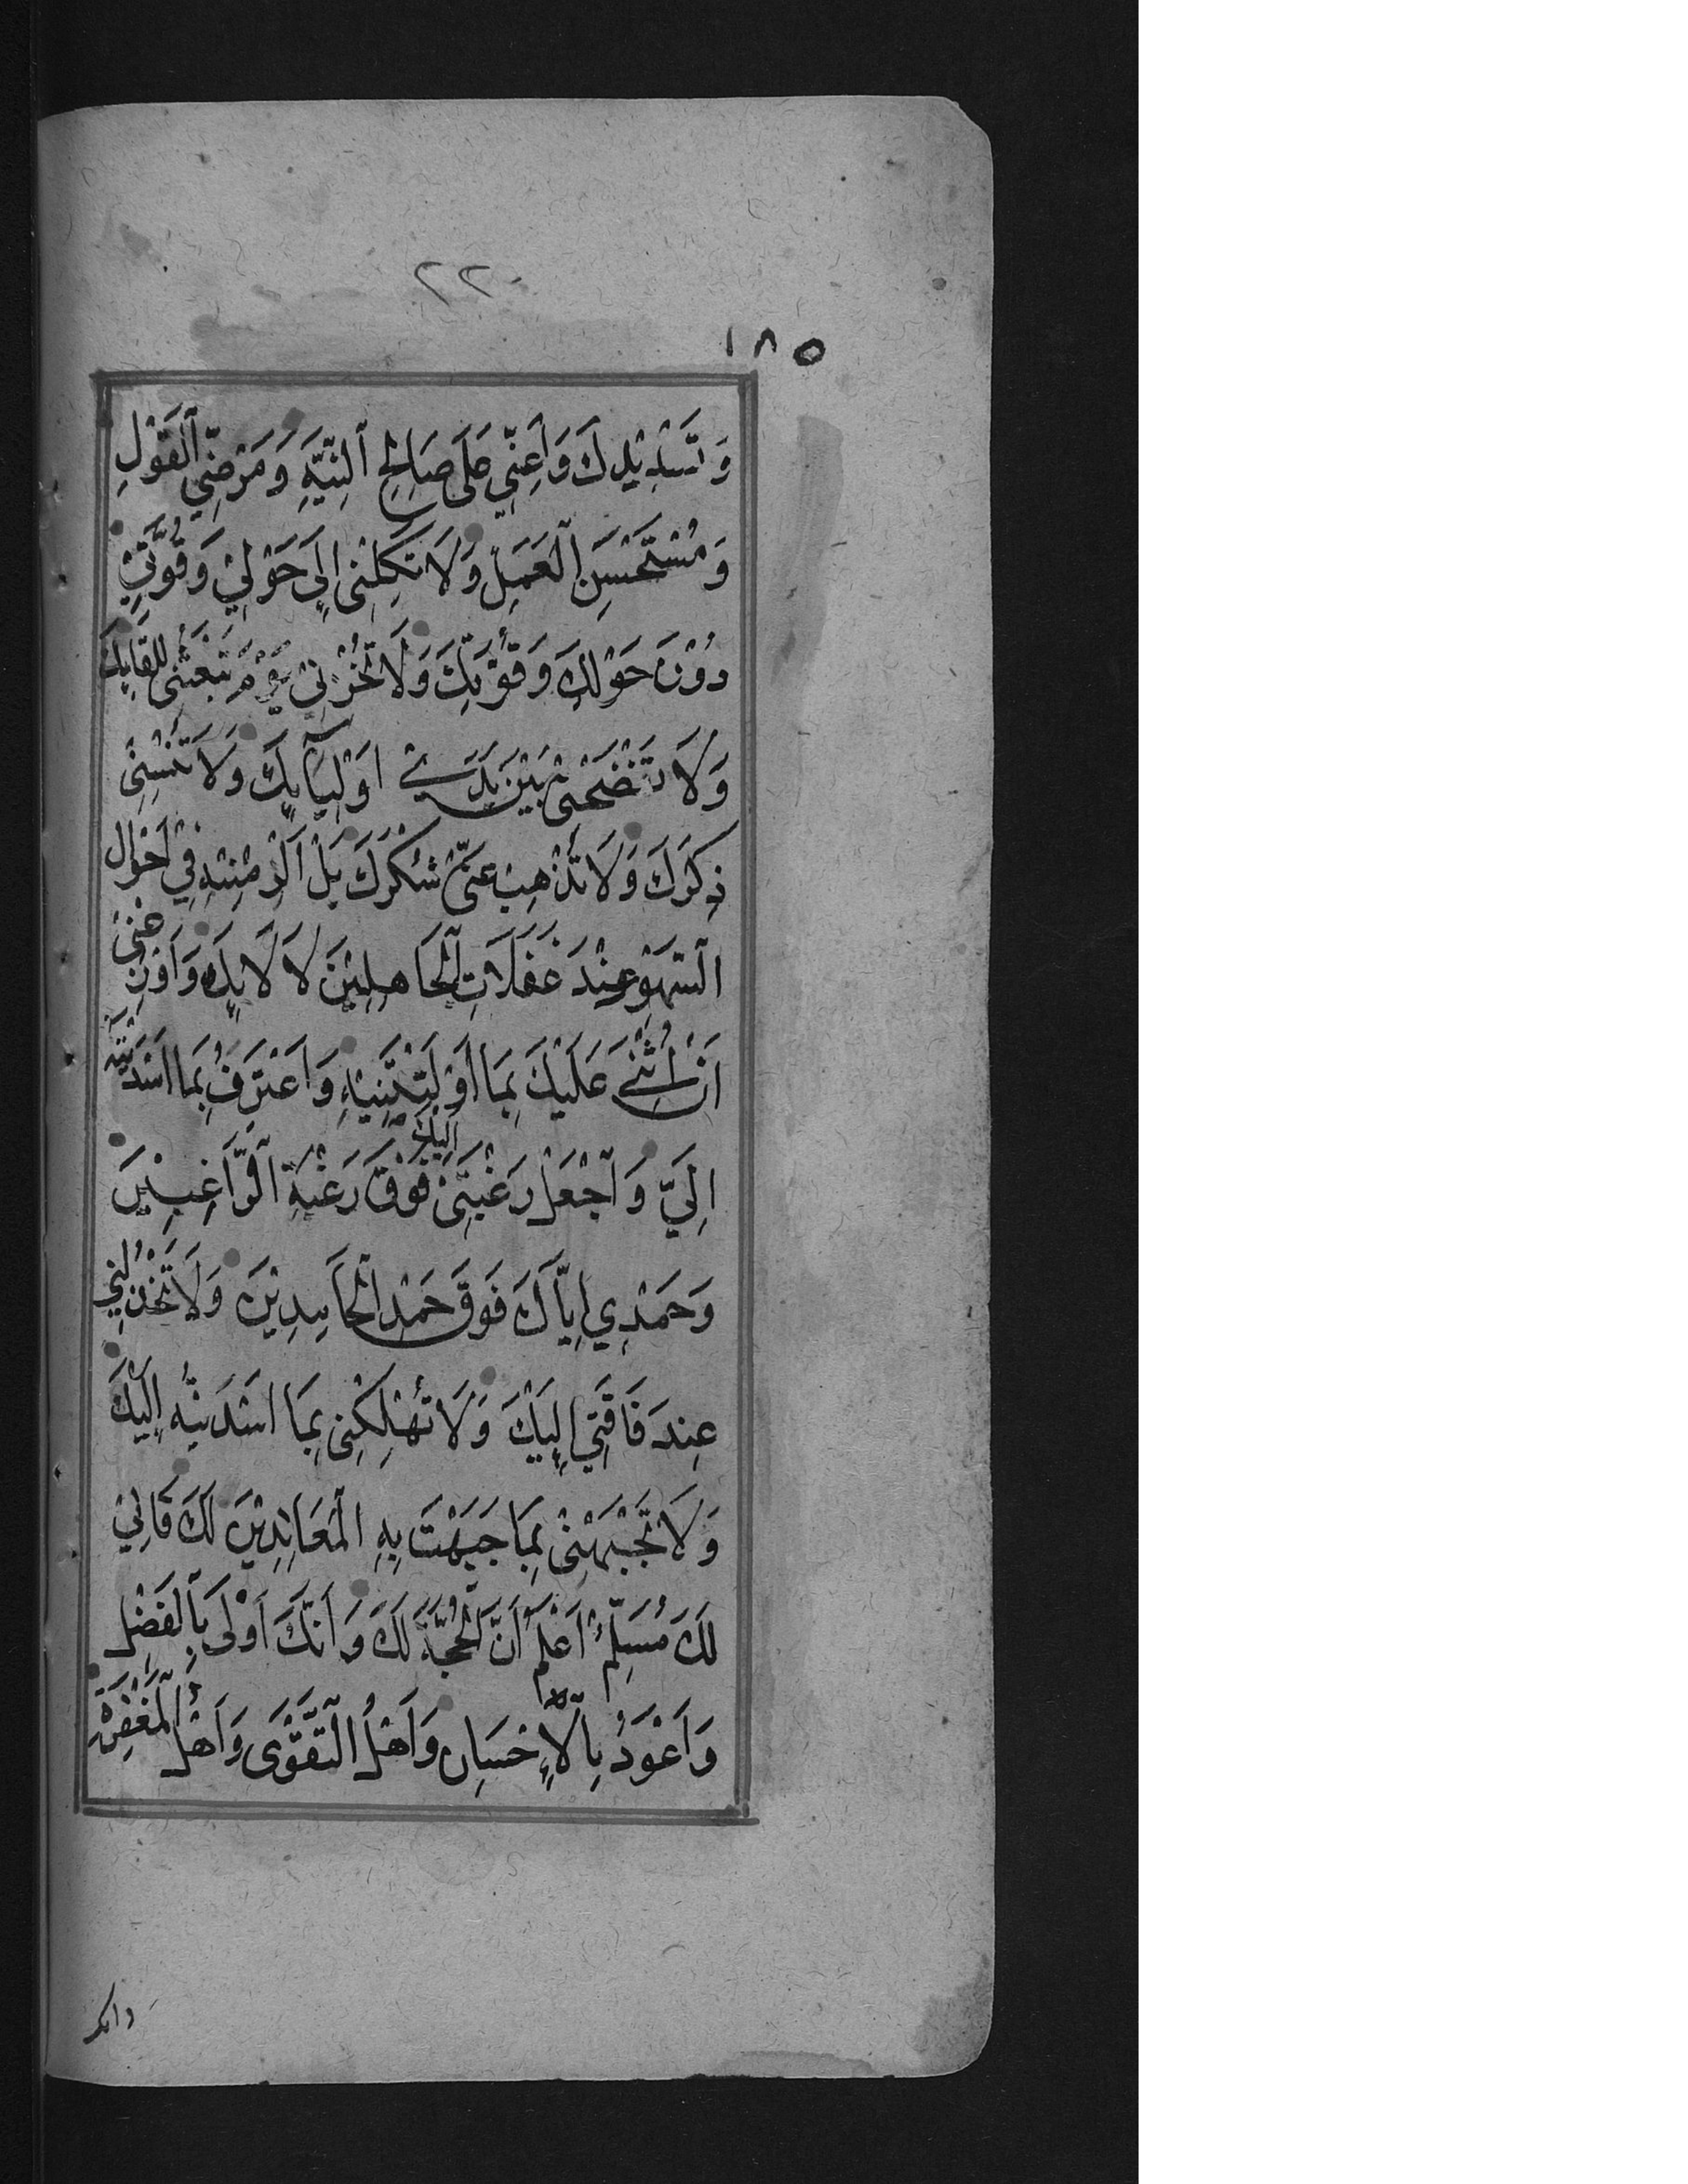 ٢٢
١٨٥
وَتَسْدِيْدِكَ وَاَعِنِّي عَلَى صَالِحِ ٱلنِّيَّةِ وَمَرْضِيِّ ٱلْقَوْلِ
وَمُسْتَحْسَنِ ٱلْعَمَلِ وَلَا تَكِلْنِى اِلَى حَوْلِيْ وَقُوَّتِيْ
دُوْنَ حَوْلِكَ وَقُوَّتِكَ وَلَا تُخْزِنِيْ يَوْمَ تَبْعَثُنِى لِلِقَايِكَ
وَلَا تَفْضَحْنِى بَيْنَ يَدَيْ اَوْلِيَآيِكَ وَلَا تُنْسِنِى
ذِكْرَكَ وَلَا تُذْهِبْ عَنِّى شُكْرَكَ بَلْ اَلْزِمْنِيْهِ فِيْ اَحْوَالِ
ٱلسَّهْوِ عِنْدَ غَفَلَاتِ ٱلْجَاهِلِيْنَ لَالَايِكَ وَاَوْزِعْنِىْ
اَنْ اُثْنِيَ عَلَيْكَ بِمَا اَوْلَيْتَنِيْهِ وَاَعْتَرِفُ بِمَا اَسْدَيْتَهُ
اِلَيَّ وَٱجْعَلْ رَغْبَتِىْ اِلَيْكَ فَوْقَ رَغْبَةِ ٱلرَّاغِبِيْنَ
وَحَمْدِي اِيَّاكَ فَوْقَ حَمْدِ ٱلْحَامِدِيْنَ وَلَا تَخْذُلْنِي
عِنْدَ فَاقَتِي اِلَيْكَ وَلَا تُهْلِكْنِى بِمَا اَسْدَيْتُهُ اِلَيْكَ
وَلَا تَجْبَهْنِىْ بِمَا جَبَهْتَ بِهِ ٱلْمُعَانِدِيْنَ لَكَ فَاِنِّيْ
لَكَ مُسَلِّمٌ اَعْلَمُ اَنَّ ٱلْحُجَّةَ لَكَ وَاَنَّكَ اَوْلَى بِٱلْفَضْلِ
وَاَعْوَدُ بِٱلْاِحْسَانِ وَاَهْلُ ٱلتَّقْوَى وَاَهْلُ ٱلْمَغْفِرَةِ